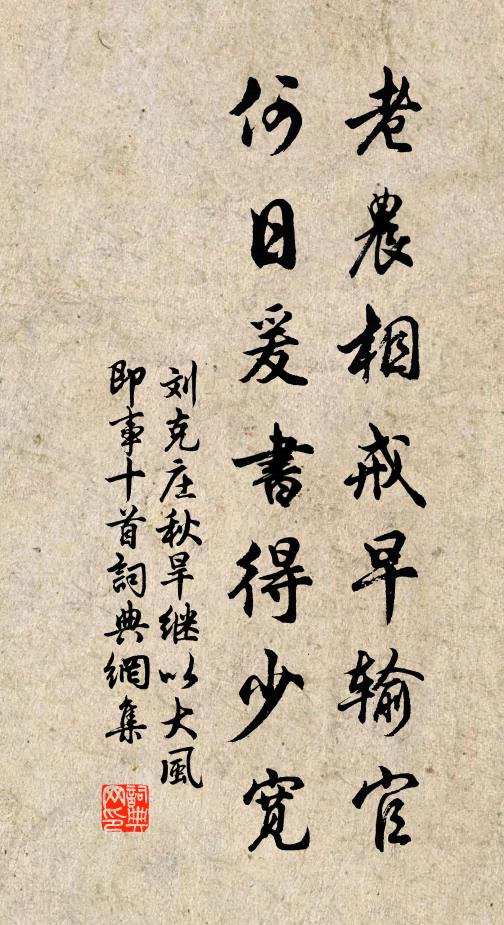 老農相戒早输官
何日爰書得少寬
刘克庄秋旱继以大風
即事十首詞典網集
詞典网印